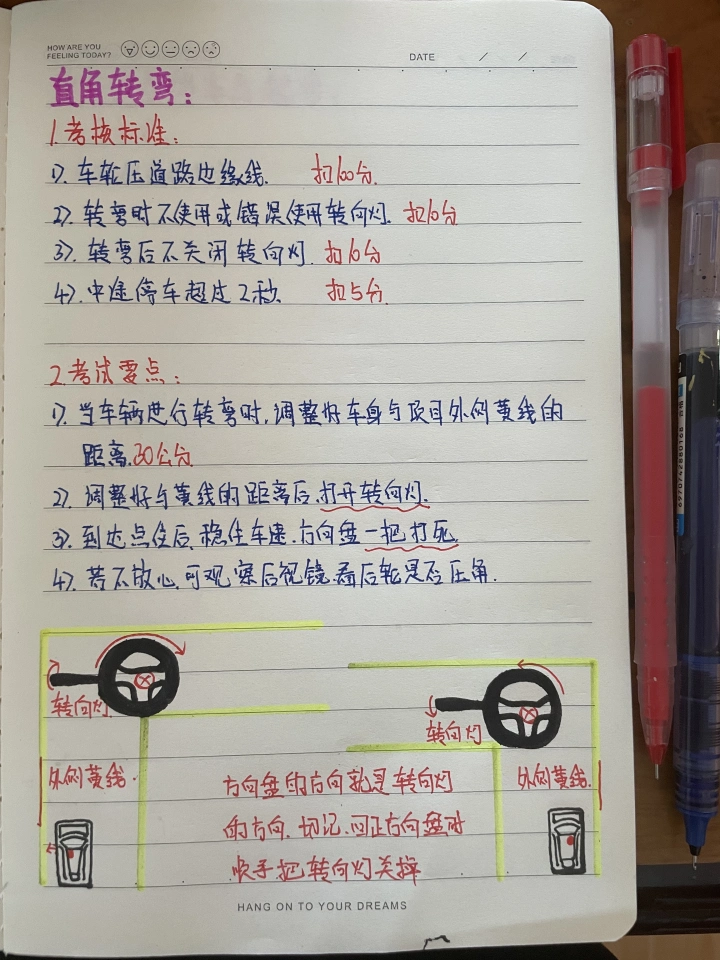 HOW ARE YOU
FEELING TODAY?
DATE / /
直角转弯:
1.考核标准:
1). 车轮压道路边缘线. 扣100分.
2). 转弯时不使用或错误使用转向灯. 扣10分
3). 转弯后不关闭转向灯. 扣10分
4). 中途停车超过2秒. 扣5分.
2.考试要点:
1). 当车辆进行转弯时,调整好车身与项目外侧黄线的
距离.30公分
2). 调整好与黄线的距离后,打开转向灯.
3). 到达点位后,稳住车速.方向盘一把打死.
4). 若不放心,可观察后视镜.看后轮是否压角.
转向灯
转向灯
外侧黄线.
外侧黄线.
方向盘的方向就是转向灯
的方向.切记.回正方向盘时
快手把转向灯关掉
HANG ON TO YOUR DREAMS